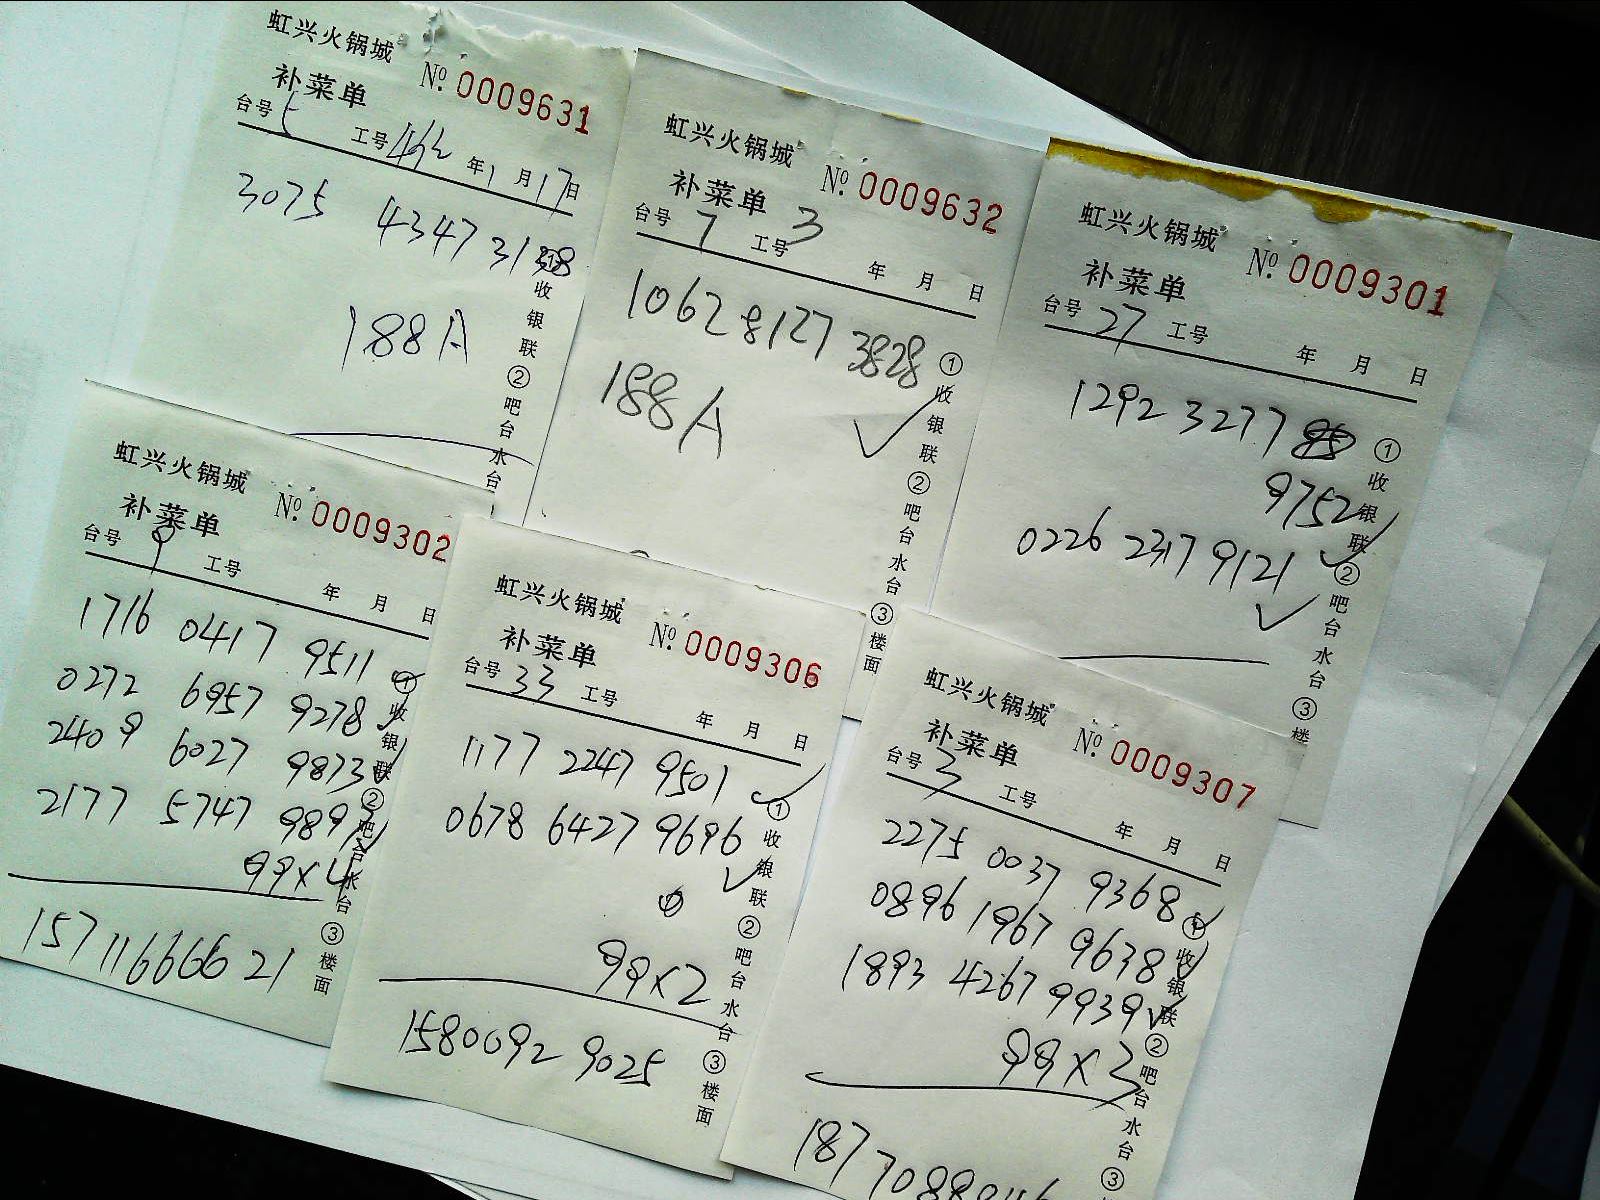 虹兴火锅城
补菜单 № 0009631
台号 5 工号 年 1 月 17 日
3075 4347 31
188A
①收银联②吧台水台
虹兴火锅城
补菜单 № 0009632
台号 7 工号 3 年 月 日
1062 8127 3828
188A
①收银联②吧台水台③楼面
虹兴火锅城
补菜单 № 0009301
台号 27 工号 年 月 日
1292 3277
9752
0226 2317 9121
①收银联②吧台水台③楼
虹兴火锅城
补菜单 № 0009302
台号 9 工号 年 月 日
1716 0417 9511
0272 6957 9278
2409 6027 9873
2177 5747 989
99×4
15711666621
①收银联②吧台水台③楼面
虹兴火锅城
补菜单 № 0009306
台号 33 工号 年 月 日
1177 2247 9501
0678 6427 9696
99×2
1580092 9025
①收银联②吧台水台③楼面
虹兴火锅城
补菜单 № 0009307
台号 3 工号 年 月 日
2275 0037 9368
0896 1967 9638
1893 4267 9939
99×3
187708
①收银联②吧台水台③